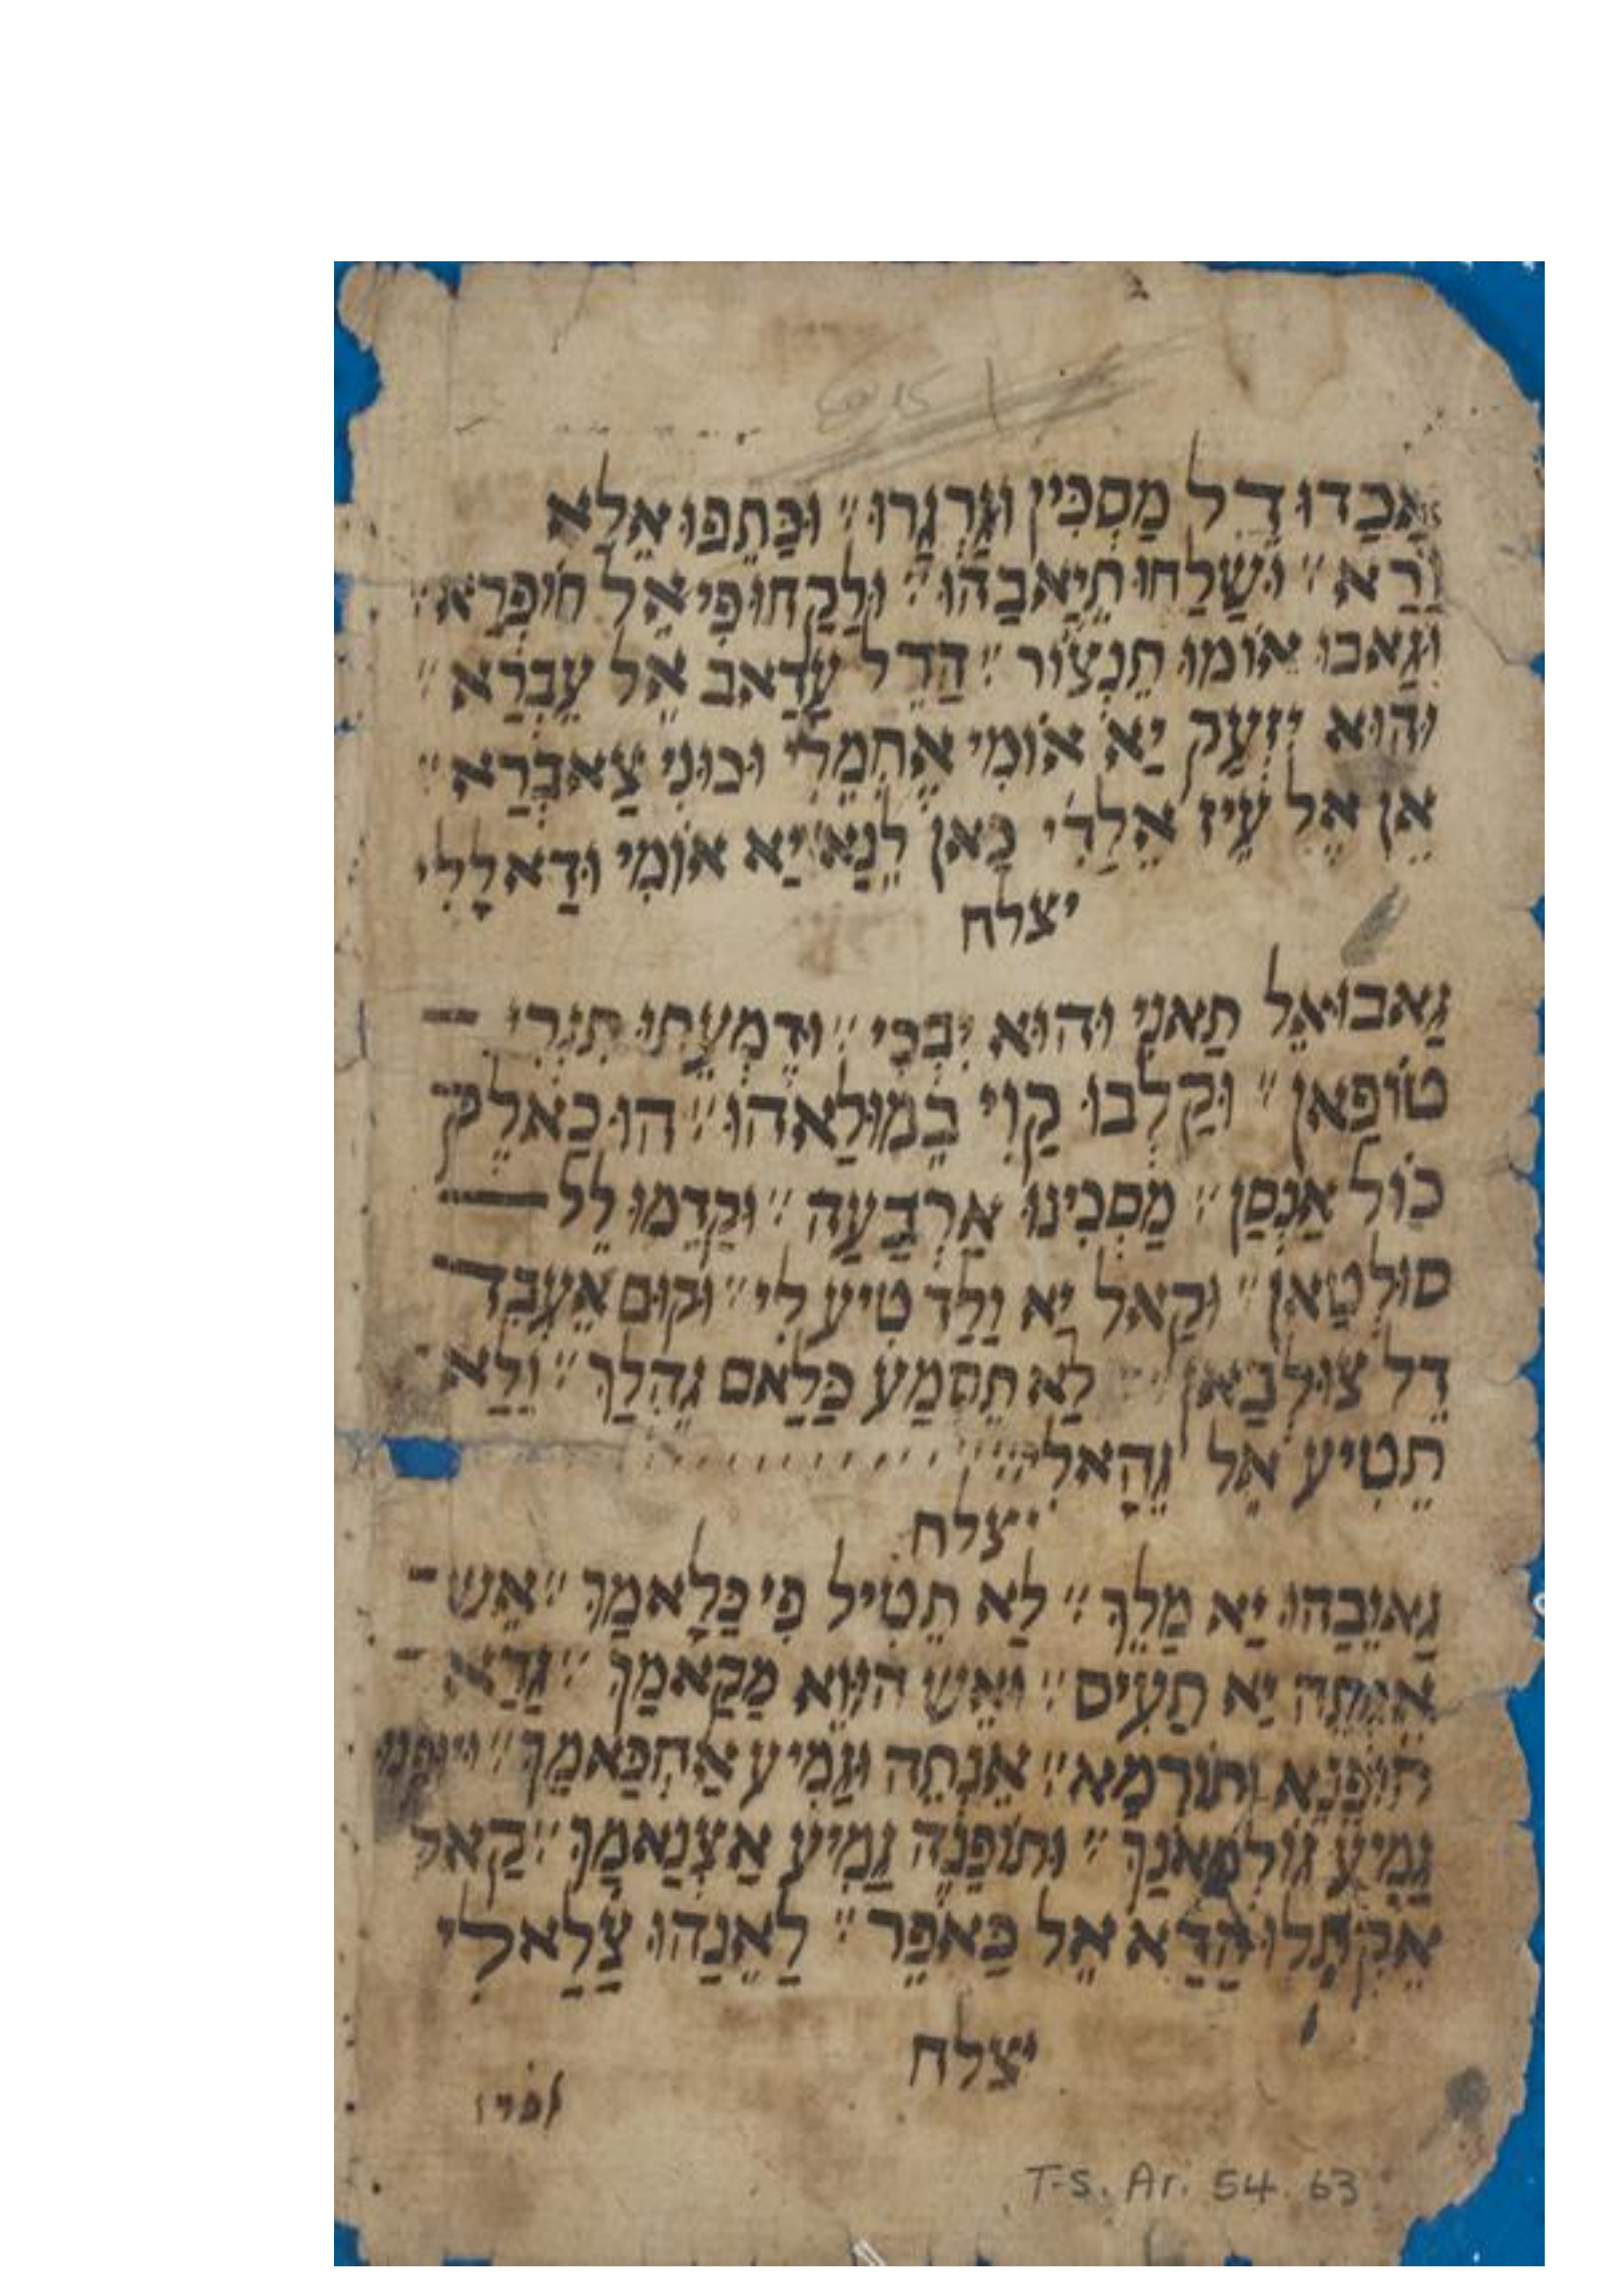 אָכַדוּ דֵל מַסְכִּין וּגַרְגָרוּ ״ וּכַּתֵפוּ אֵלַא
וַרַא ״ וּשַׁלַחוּ תֵיַאבַהוּ ״ וּלַקַחוּ פִי אֵל חוֹפְרַא ״
וּגַאבוּ אוֹמוּ תֵנְצוֹר ״ הַדֵל עָדַאב אֵל עֵבְרַא ״
וּהוּא יִזְעַק יַא אוֹמִי אֵחְמֵלִי וּכוּנִי צַאבְרַא ״
אֵן אֵל עֵיז אֵלַדִי כַּאן לֵנַא יַא אוֹמִי וּדַאלָלִי
יצלח
גַאבוּ אֵל תַאנִי וּהוּא יִבְכִּי ״ וּדֵמְעָתוּ תִגְרִי
טוֹפַאן ״ וּקַלְבוּ קַוִי בֵמוּלַאהוּ ״ הוּ כַאלֵק
כוֹל אַנְסַן ״ מַסְכִינוּ אַרְבַעָה ״ וּקַדִמוּ לֵל
סוּלְטַאן ״ וּקַאל יַא וַלַד טִיע לִי ״ וּקוּם אֵעְבִד
דֵל צוּלְבַאן ״ לַא תֵסְמַע כַּלַאם גֵהְלַךְ ״ וַלַא
תֵטִיע אֵל גֵהָאלִי
יצלח
גַאוֵבַהוּ יַא מַלֵךְ ״ לַא תֵטִיל פִי כַּלָאמַךְ ״ אֵשׁ
אֵנְתֵה יַא תַעִיס ״ וּאֵשׁ הוּוֵא מַקַאמַךְ ״ גַדַא
תוֹפְנַא וְתוֹרְמַא ״ אֵנְתֵה וּגַמִיע אַחְכַּאמַךְ ״
גַמִיע גוּלְמַאנַךְ ״ וּתוֹפְנֵה גַמִיע אַצְנַאמַךְ ״ קַאל
אֵקְתְלוּ הַדַא אֵל כַּאפֵר ״ לַאֵנַהוּ צַלַאלִי
יצלח
T-S. Ar. 54. 63